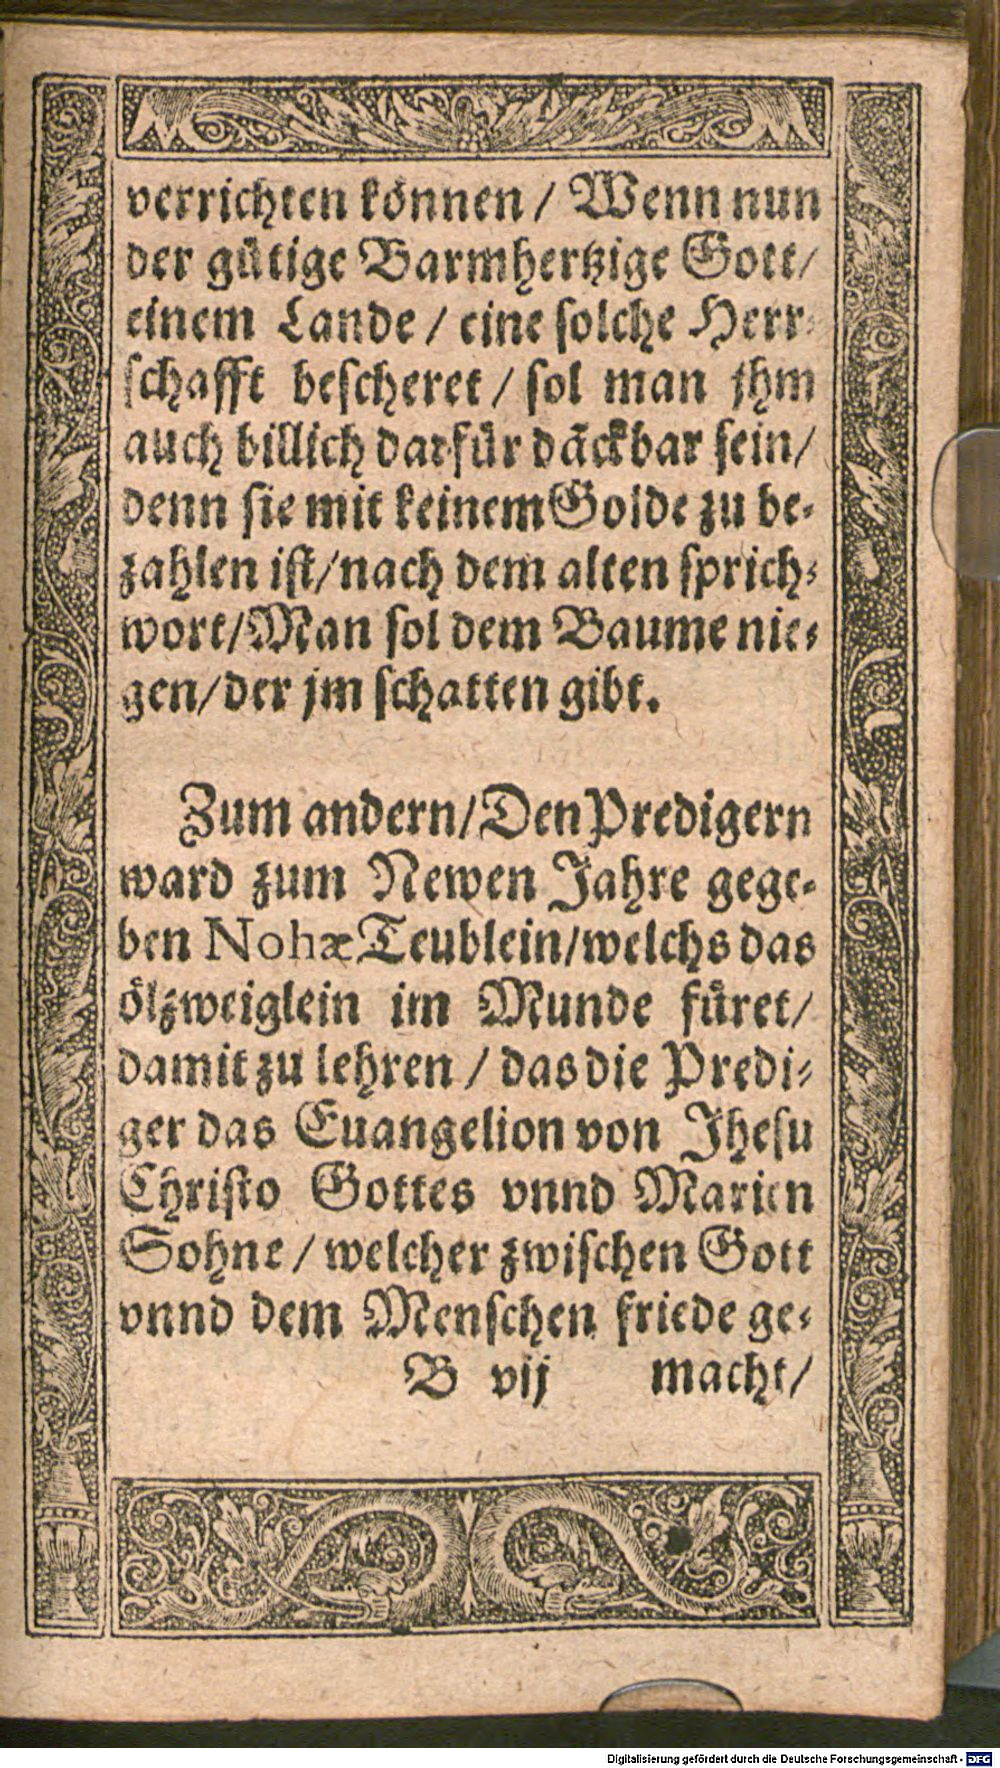 verrichten können / Wenn nun
der gütige Barmhertzige Gott/
einem Lande / eine solche Herr-
schafft bescheret / sol man jhm
auch billich darfür dāckbar sein/
denn sie mit keinem Golde zu be-
zahlen ist/nach dem alten sprich-
wort/Man sol dem Baume nie-
gen/der jm schatten gibt.
Zum andern/Den Predigern
ward zum Newen Jahre gege-
ben Nohæ Teublein/welchs das
ölzweiglein im Munde füret/
damit zu lehren / das die Predi-
ger das Euangelion von Jhesu
Christo Gottes vnnd Marien
Sohne / welcher zwischen Gott
vnnd dem Menschen friede ge-
B vij macht/
Digitalisierung gefördert durch die Deutsche Forschungsgemeinschaft - DFG